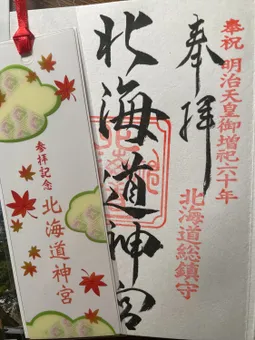 奉祝 明治天皇御増祀六十年
北海道総鎮守
奉拝
北海道神宮
参拝記念
北海道神宮